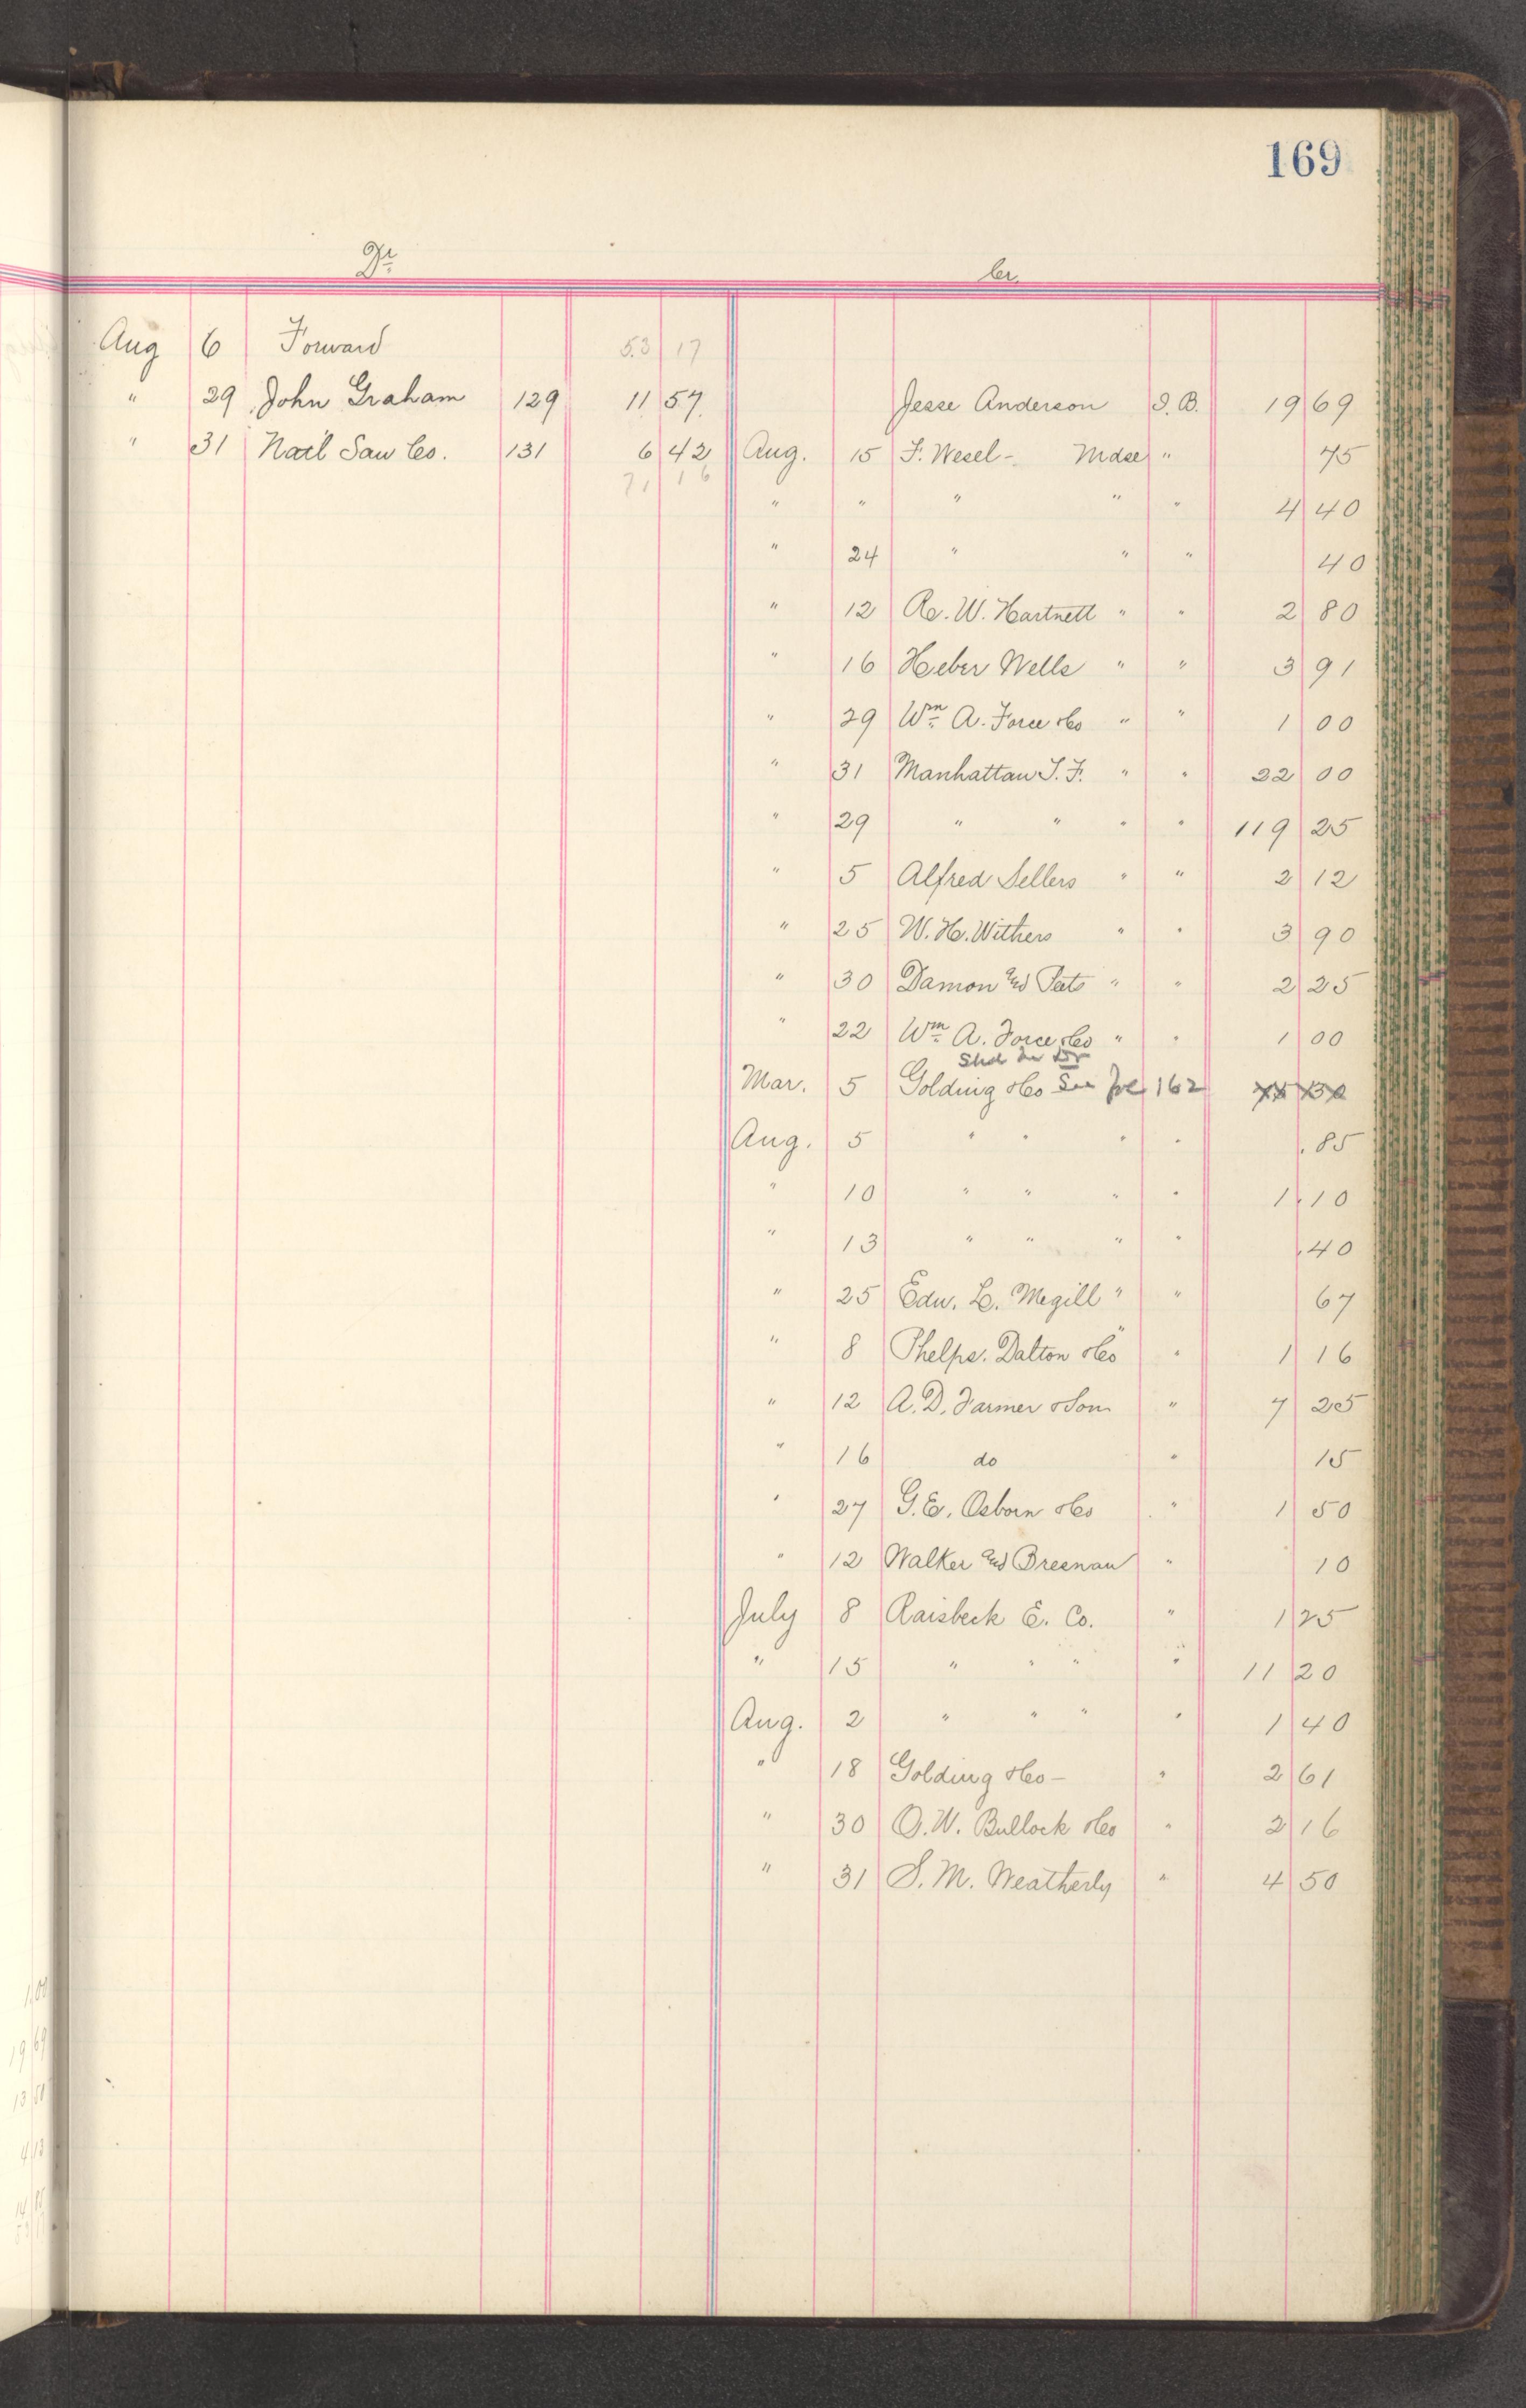 169
Dr Cr.
Aug 6 Forward 53 17
" 29 John Graham 129 11 57 Jesse Anderson I.B. 19 69
" 31 Nat'l Saw Co. 131 6 42 Aug. 15 F. Wesel - Mdse " 75
71 16
" " " " " 4 40
" 24 " " " 40
" 12 R. W. Hartnett " " 2 80
" 16 Heber Wells " " 3 91
" 29 Wm A. Force & Co " " 1 00
" 31 Manhattan T. F. " " 22 00
" 29 " " " " 119 25
" 5 Alfred Sellers " " 2 12
" 25 W. H. Withers " " 3 90
" 30 Damon and Peets " " 2 25
" 22 Wm A. Force & Co " " 1 00
Shd be Dr
Mar. 5 Golding & Co See fol 162
Aug. 5 " " " " .85
" 10 " " " " 1.10
" 13 " " " " .40
" 25 Edw. L. Megill " " 67
" 8 Phelps. Dalton & Co " " 1 16
" 12 A. D. Farmer & Son " 7 25
" 16 do " 15
" 27 G. E. Osborn & Co " 1 50
" 12 Walker and Bresnan " 10
July 8 Raisbeck E. Co. " 1 25
" 15 " " " " 11 20
Aug. 2 " " " " 1 40
" 18 Golding & Co - " 2 61
" 30 O. W. Bullock & Co " 2 16
" 31 S. M. Weatherly " 4 50
1 00
19 69
13 51
4 13